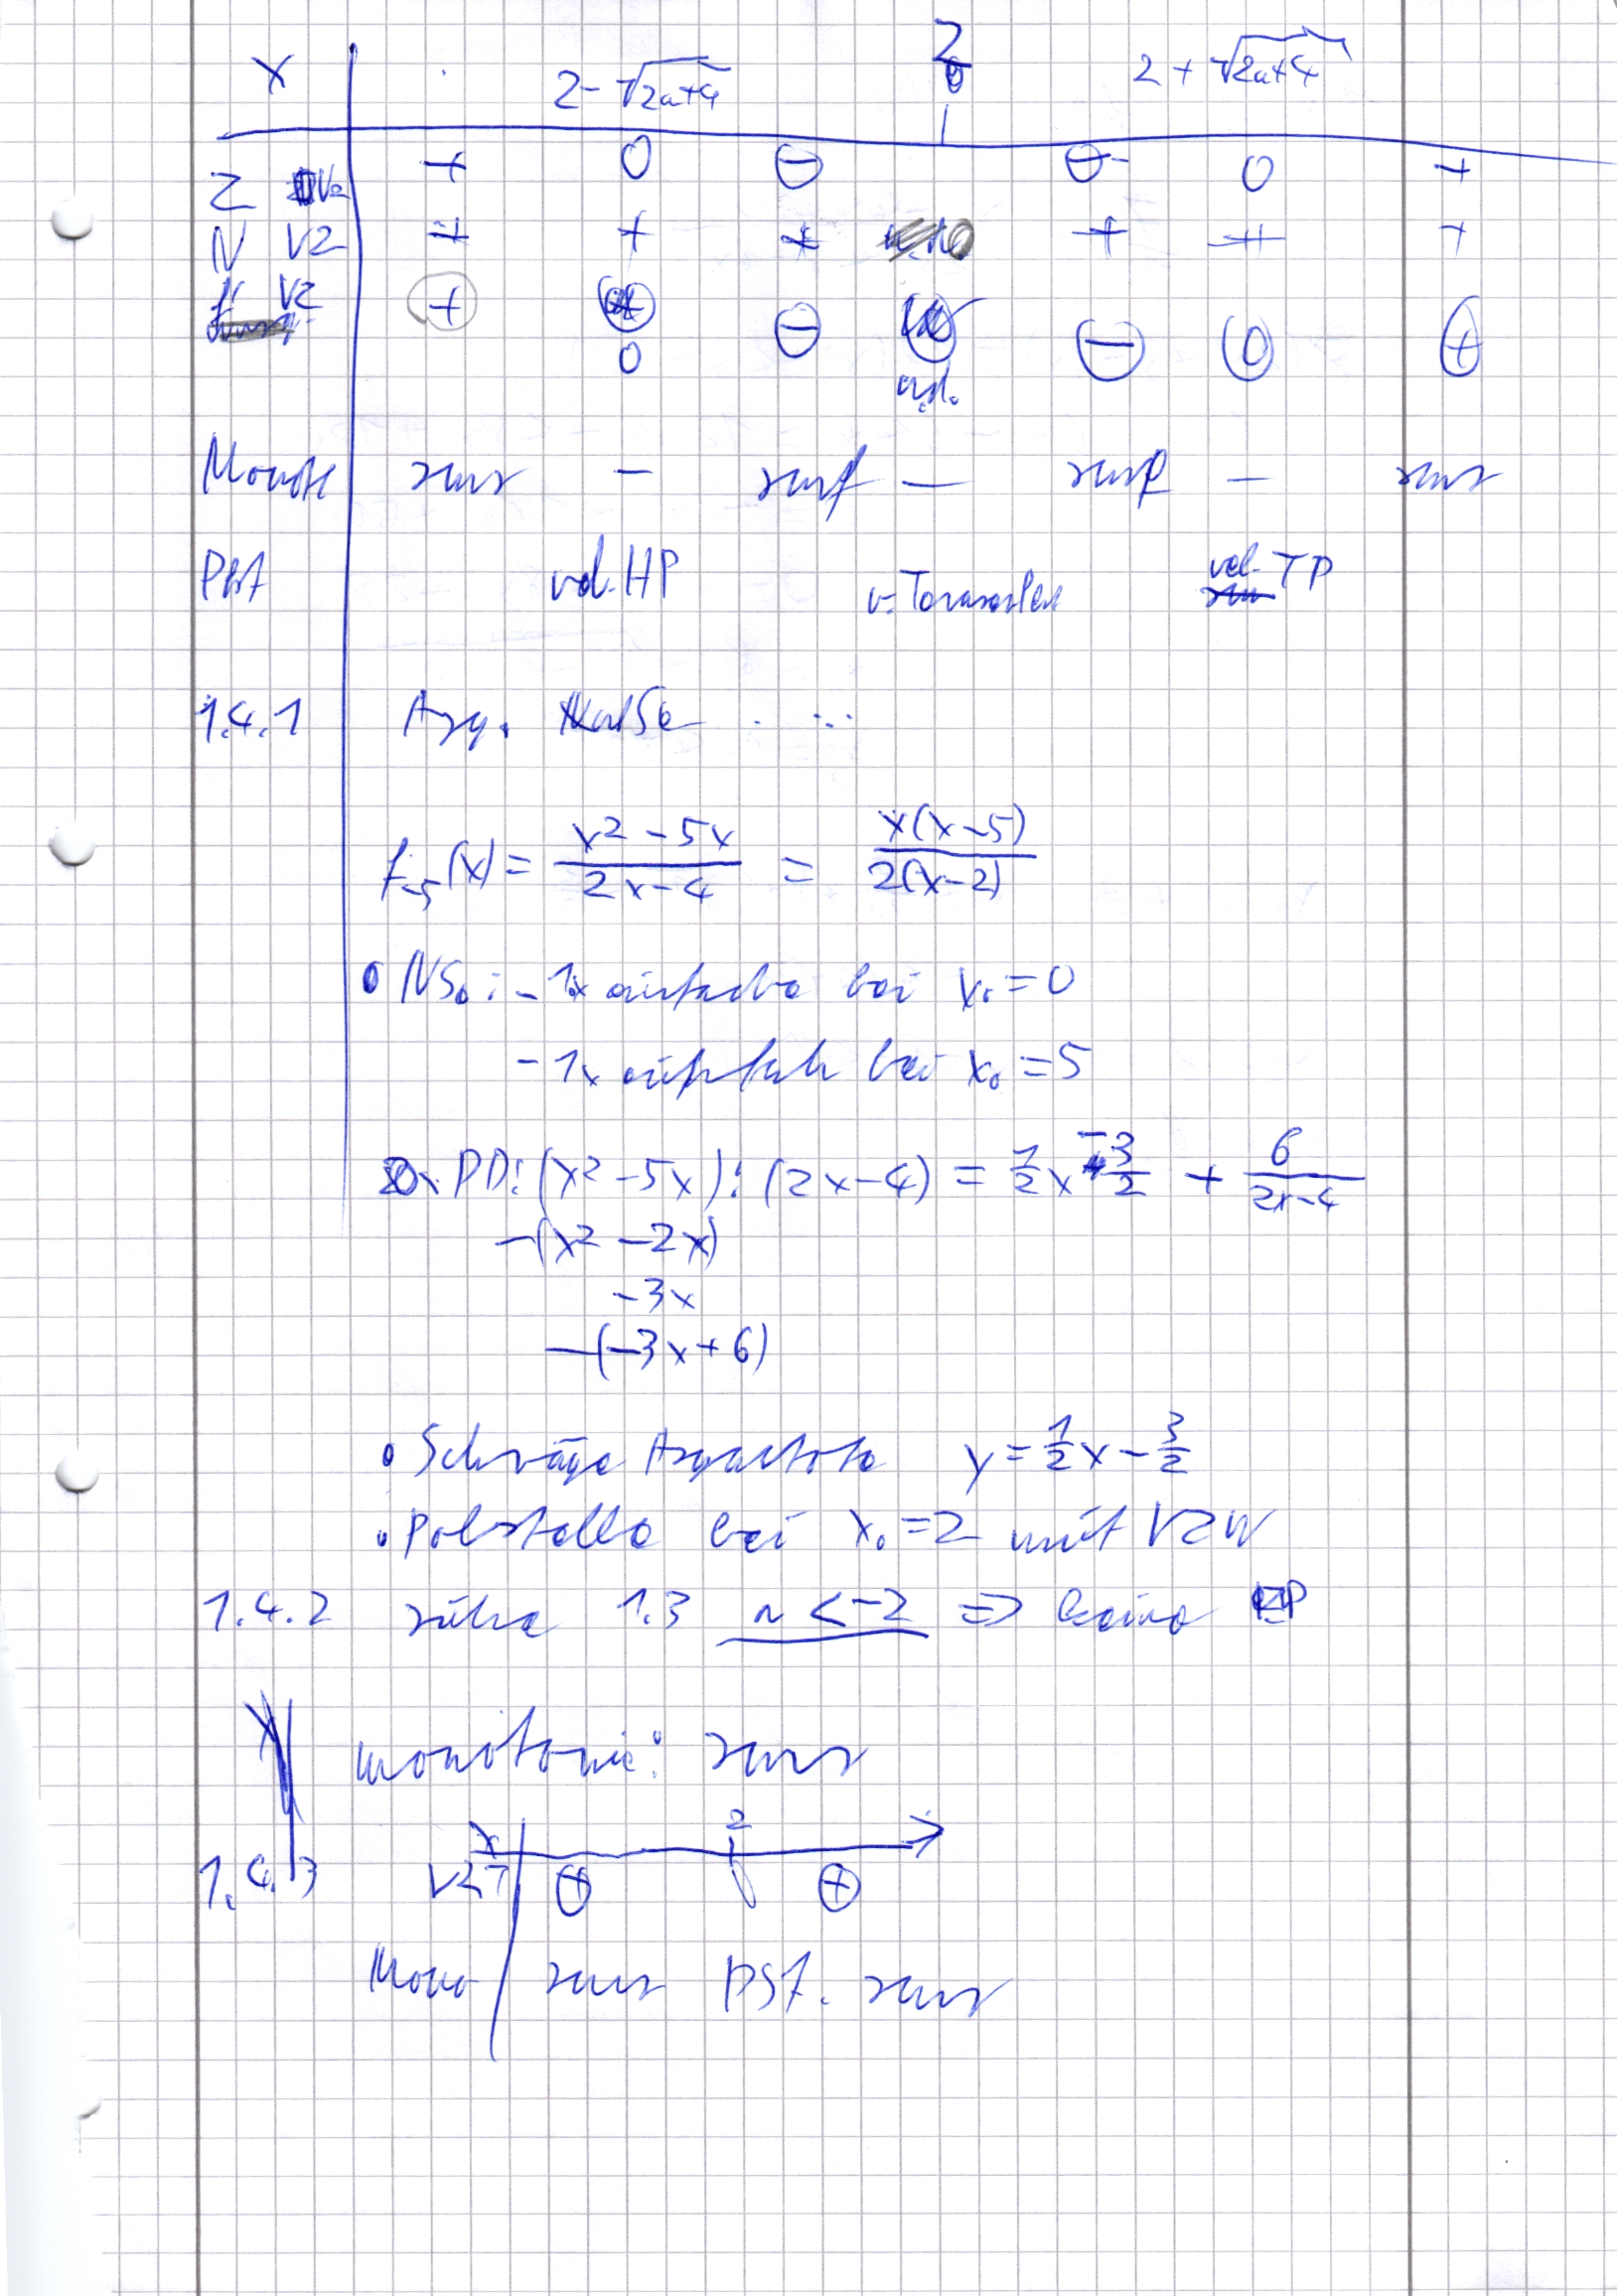 x 2-√2a+4 2 2+√2a+4
Z VZ + 0 - - 0 +
N VZ + + + 0 + + +
f' VZ + 0 - n.d. - 0 + 
Monot sms - smf — smf — sms
Pkt rel. HP rel. TP
1.4.1 Asy. ...
f₋₅(x) = x² - 5x / 2x - 4 = x(x-5) / 2(x-2)
• NS: - 1x einfache bei x₀ = 0
- 1x einfach bei x₀ = 5
PD: (x² - 5x) : (2x - 4) = 1/2 x - 3/2 + 6/2x-4
-(x² - 2x)
-3x
-(-3x + 6)
• Schräge Asymptote y = 1/2 x - 3/2
• Polstelle bei x₀ = 2 mit VZW
1.4.2 siehe 1.3 a < -2 => keine EP
monotonie: sms
x 2
1.4.3 VZ + +
Mono sms PSt. sms